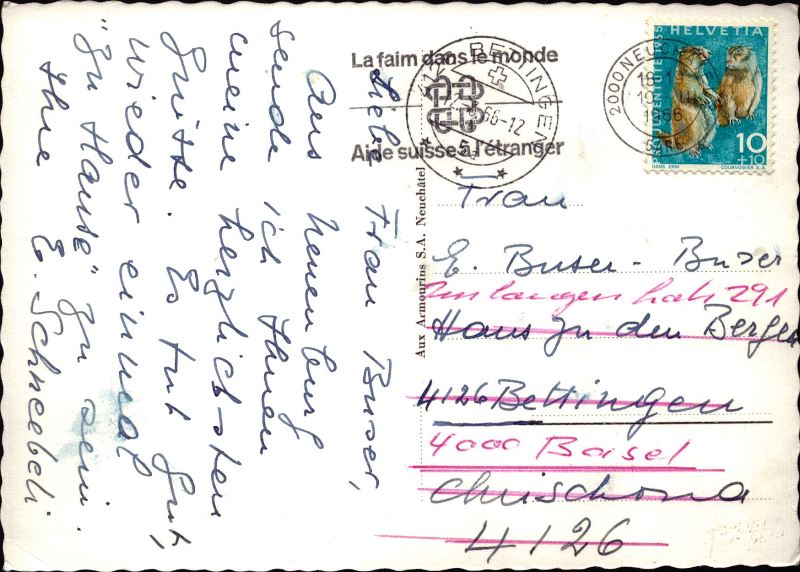 Liebe Frau Buser,
Aus Neuenburg
sende ich Ihnen
meine herzlichsten
Grüsse. Es tut gut,
wieder einmal
"zu Hause" zu sein.
Ihre E. Schneebeli
La faim dans le monde
Aide suisse à l'étranger
4126 BETTINGEN
66-12
2000 NEUCH
18-1
1966
GARE
HELVETIA
PRO JUVENTUTE 1965
10
+10
HANS ERNI
COURVOISIER S.A.
Aux Armourins S.A. Neuchâtel
Frau
E. Buser-Buser
Im langen Loh 291
Haus zu den Bergen
4126 Bettingen
4000 Basel
Chrischona
4126